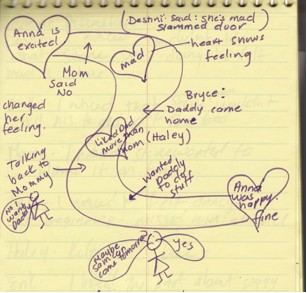 (Deshni: said: she's mad
slammed door
Anna is
excited
mad
heart shows
feeling
Mom
Said
No
Bryce:
Daddy come
home
changed
her
feeling.
Liked Dad
more than
mom
(Haley)
Talking
back to
Mommy
Wanted
Daddy
to do
stuff
Anna
was happy
fine
No
want
Daddy
Maybe
Sam can
come tomorrow?
Yes